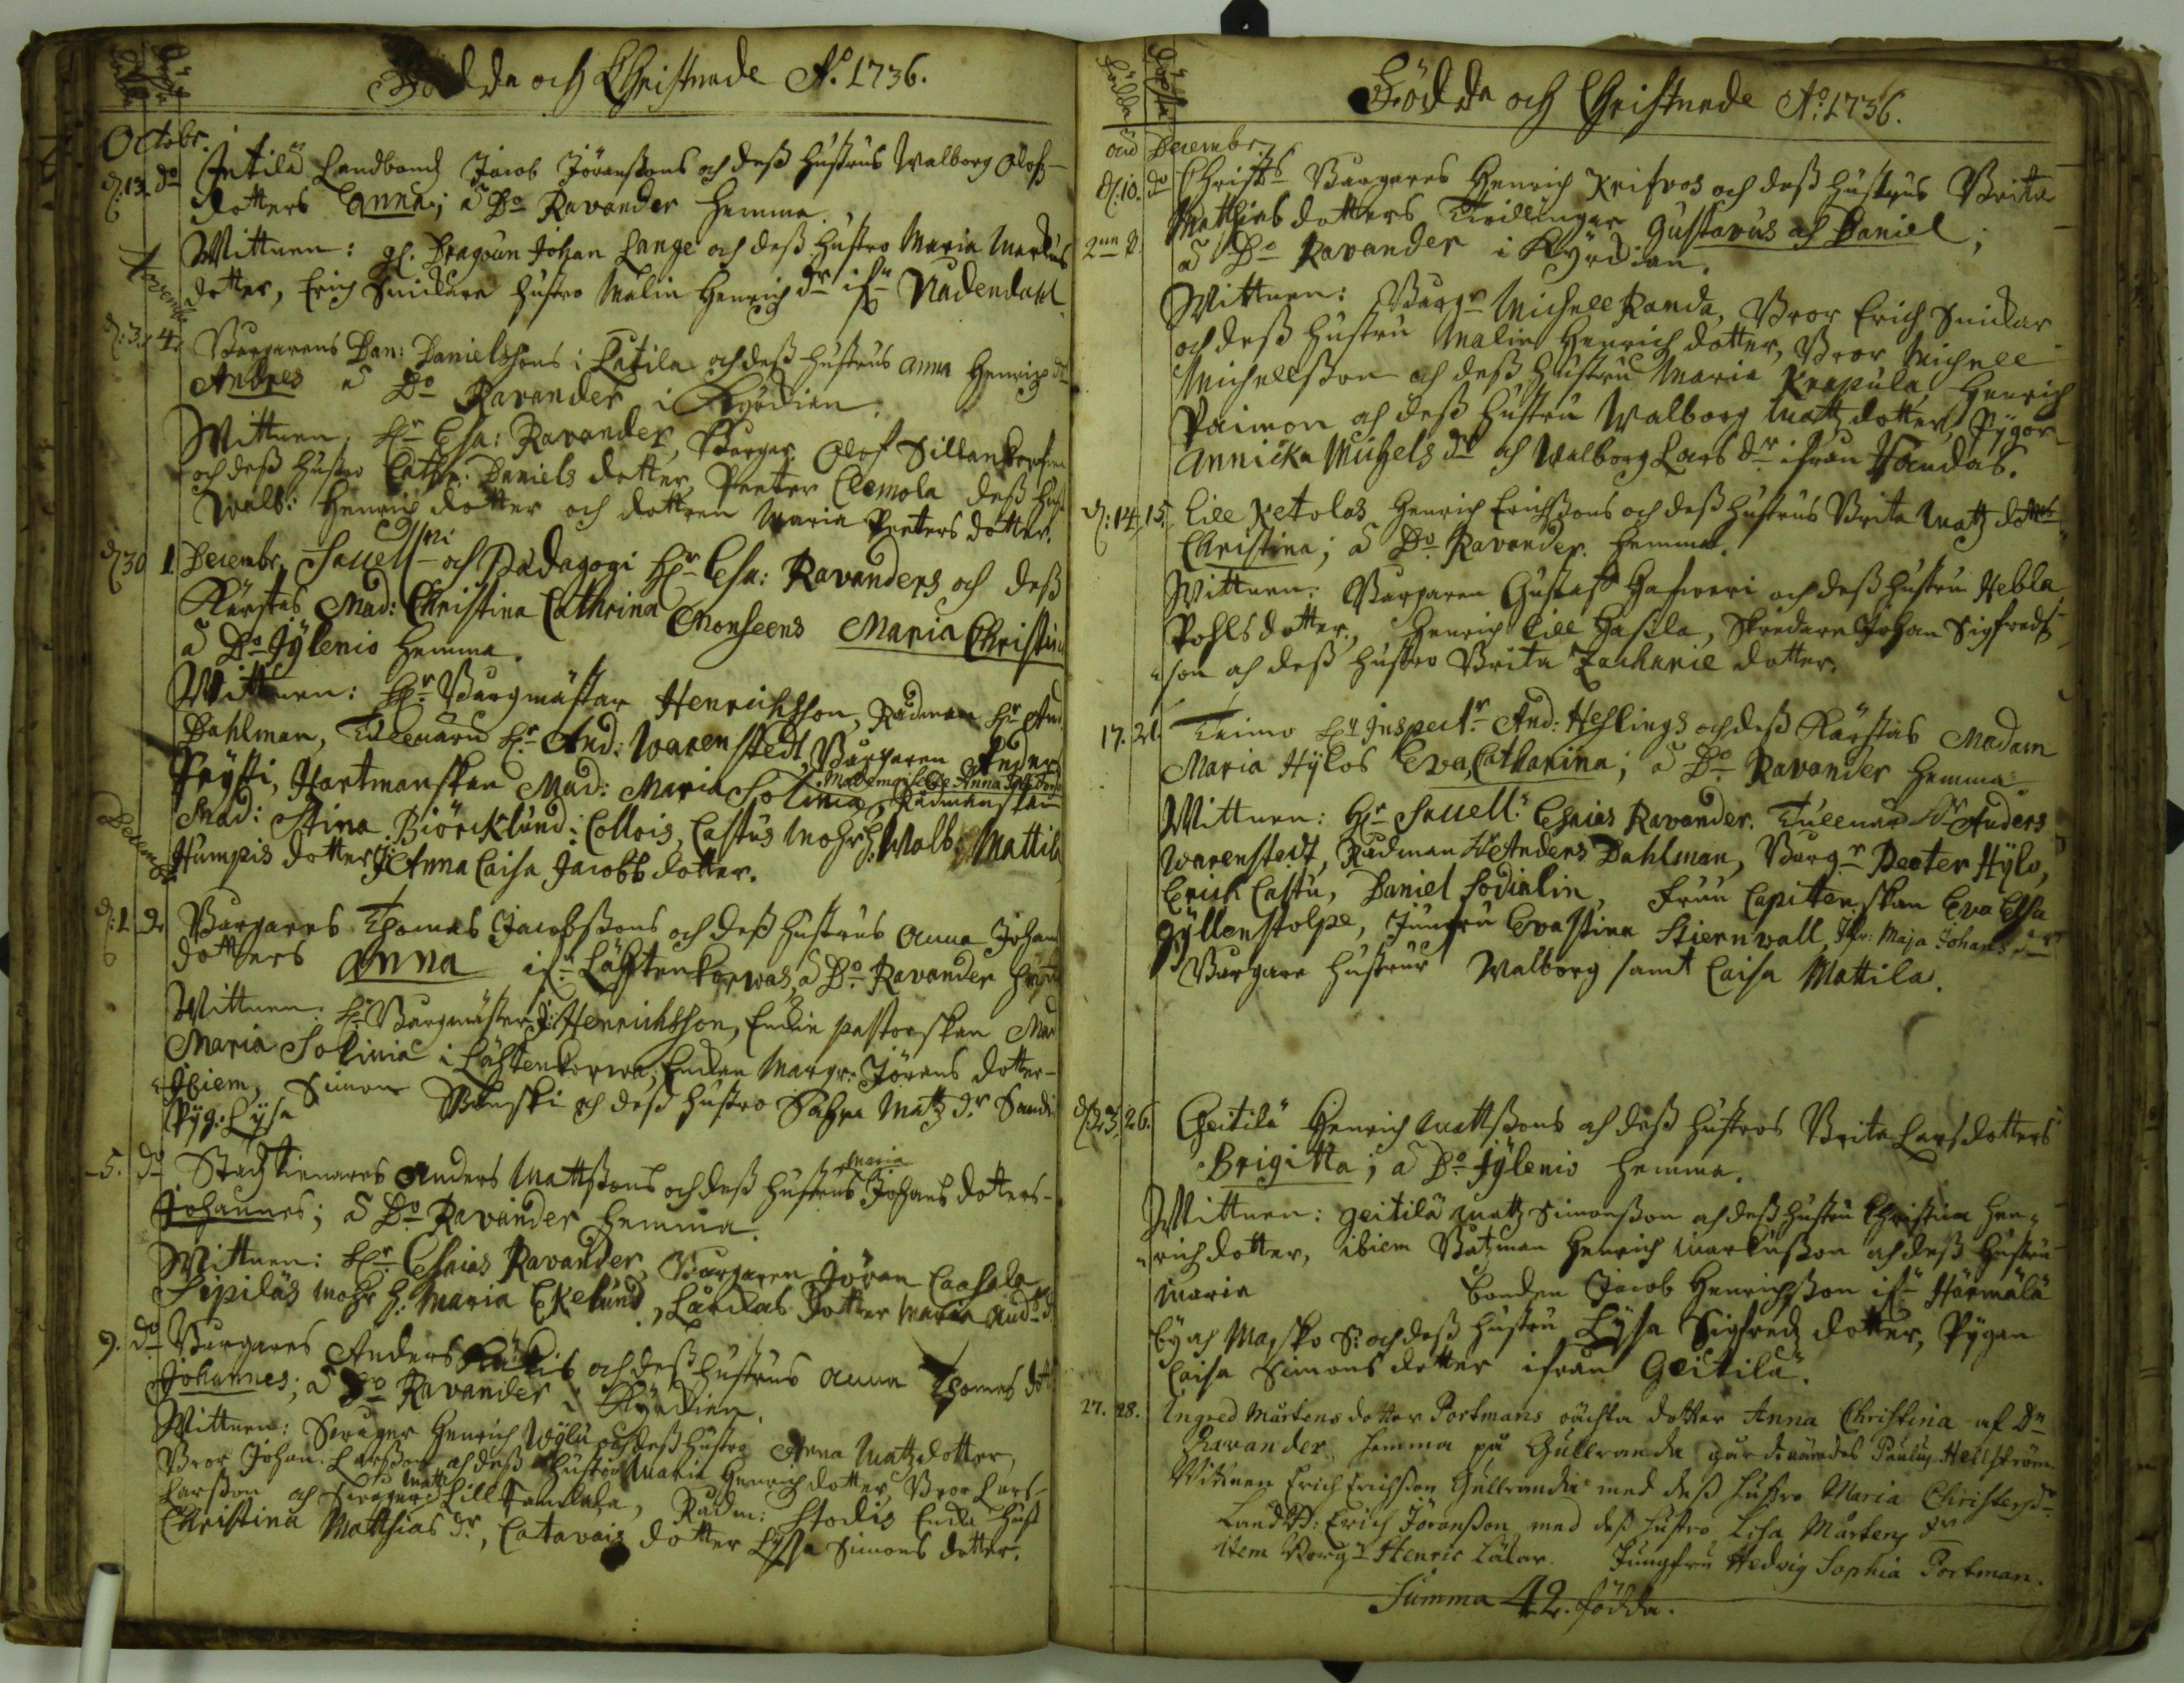 Födda och Christnade Ao. 1736.
Octobr.
d. 13. do Landbond Jacob Jöranssons och dess hustrus Walborg Olofs-
dotters Anna; a Do Ravander hemma.
Wittnen: gl. Dragoun Johan Lange och dess hustro Maria Markus
dotter, Erich Snickare hustro Malin Henrich dr ifn Nådendahl.
Novembr
d. 3. 4. Borgarens Dan: Danielssons i Latila och dess hustrus Anna Henrichs dr
Andres a Do Ravander i Kyrckian.
Wittnen: Hr Esa: Ravander, Borgar. Olof Sillankorfva
och dess hustro Cathr: Daniels dotter, Peeter Clemola dess hust
Walb: Henrich dotter och dottren Maria Peeters dotter.
d 30 1 Decembr. Sacell: och Pædagogi Hr Esa: Ravanders och dess
Kärstas Mad: Christina Cathrina Monseens Maria Christina
a Do Jylenio hemma.
Wittnen: Hr Borgmästar Henrichsson, Rådman Hr And
Dahlman, Tullnären Hr And: Warenstedt, Borgaren Anders
Prysti, Hartmanskan Mad: Maria Solinia, Mademoiselle Anna Rådmanskan
Mad: Stina Biörcklund: Collois, Castus Mohr h: Walb: Mattila
Humpis dotter J: Anna Caisa Jacobs dotter.
Decembr
d. 1. do Borgares Thomas Jacobssons och dess hustrus Anna Johan
dotters Anna ifn Lähtenkorwas, a Do Ravander hemma
Wittnen: Hr Borgmäster J: Henrichsson, Enckie pastorskan Mad
Maria Solinia i Lähtenkorwa, Enckan Margr: Jörans dotter
Ibiem, Simon och dess hustro Sabina Matz dr
Pyg: Lysa
5. do Stadztienares Anders Mattssons och dess hustrus Maria Johans dotters
Johannes; a Do Ravander hemma.
Wittnen: Hr Esaias Ravander, Borgaren Jöran Caasala
Sipiläs mohr h. Maria Ekelund, dotter Maria And: dr
9. do Borgares Anders och dess hustrus Anna Thomas dott
Johannes; a Do Ravander i Kyrckian.
Wittnen: Henrich Wylä och dess hustro Anna Matz dotter,
Bror Johan Larsson och dess hustro Maria Henrich dotter, Bror Lars
Larsson och Matt Lill Tamckala, Rådm: Stodis Encka Hust
Christina Matthias dr, Catavais dotter Lysa Simons dotter.
Födda Döpte
Födda och Christnade Ao. 1736.
Decembr.
d. 10. do Borgares Henrich Krifvos och dess hustrus Brita
Mathiæ dotters Tvillingar Gustavus och Daniel;
a Do Ravander i Kyrckian.
Wittnen: Borgr Michell Randa, Bror Erich Snickar
och dess hustru Malin Henrich dotter, Bror Michell
Michellsson och dess hustru Maria Krapula, Henrich
Paimon och dess hustru Walborg Matz dotter, Pygor
Annicka Michels dr och Walborg Lars dr ifrån Handas.
d. 14. 15. Lill Ketolas Henrich Erichssons och dess hustrus Brita Matz dotters
Christina; a Do Ravander. hemma.
Wittnen: Borgaren Gustaff Hafveri och dess hustru Hebla
Pohls dotter, Henrich Lill Hasila, Skredare Johan Sigfreds-
son och dess hustro Brita Zachariæ dotter.
17. 21. Teimo Hr Inspectr And: Heslings och dess Kärstas Madam
Maria Hylos Eva Catharina; a Do Ravander hemma
Wittnen: Hr Sacell: Esaias Ravander. Tullnär Hr Anders
Warenstedt, Rådman Hr Anders Dahlman, Borgr Peeter Hylo,
Erich Castu, Daniel Sodialin, Fruu Capitenskan Eva Elsa
Gyllenstolpe, Jungfru Eva Stina Stiernvall, Jfr: Maja Johans dr
Borgare hustrur Walborg samt Caisa Mattila.
d 23. 26. Geitilä Henrich Mattssons och dess hustros Brita Larsdotters
Brigitta; a Do Jylenio hemma.
Wittnen: Geitilä Matz Simonsson och dess hustru Christina Hen-
rich dotter, ibiem Båtzman Henrich Markusson och dess hustru
Maria bonden Jacob Henrichsson ifn Härmälä
by och Masko S: och dess hustru Lysa Sigfredz dotter, Pygan
Caisa Simons dotter ifrån Geitilä.
27. 28. Ingred Mårtens dotter Portmans oächta dotter Anna Christina af Dn
Ravander hemma på Gullranda Paulus Hellström
Vittnen Erich Erichsson Gullranda med dess hustro Maria Christers dr
Landtb: Erich Jöransson med dess hustro Lisa Mårtens dr
item Borgr Henric Lälar. Jungfru Hedvig Sophia Portman.
Summa 42. födda.